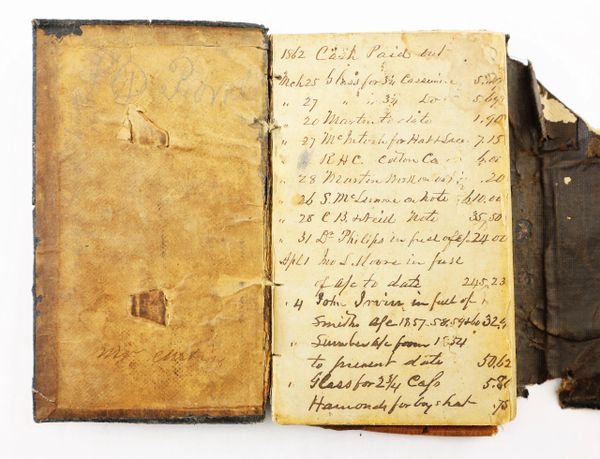 1862 Cash Paid out
Mch 25 Glass for 3¼ Cassimere
" 27 " " 3¼ Do
20 Martin to date 1.90
" 27 McIntosh for Hat & Lace 7.15
" R H C. Cotton Co 6.00
" 28 Martin .20
" 26 S. McLemore on Note 610.00
" 28 C B. Neill Note 35.50
" 31 Dr Philips in full of a/c 24.00
Apl 1 Mo L Moore in full
of a/c to date 245.23
" 4 John Irvin in full of
Smiths a/c 1857.58.59 & 60 32.
" Lumber a/c from 1854
to present date 50.62
" Glass for 2¾ 5.8
Hamonds for boys hat .75